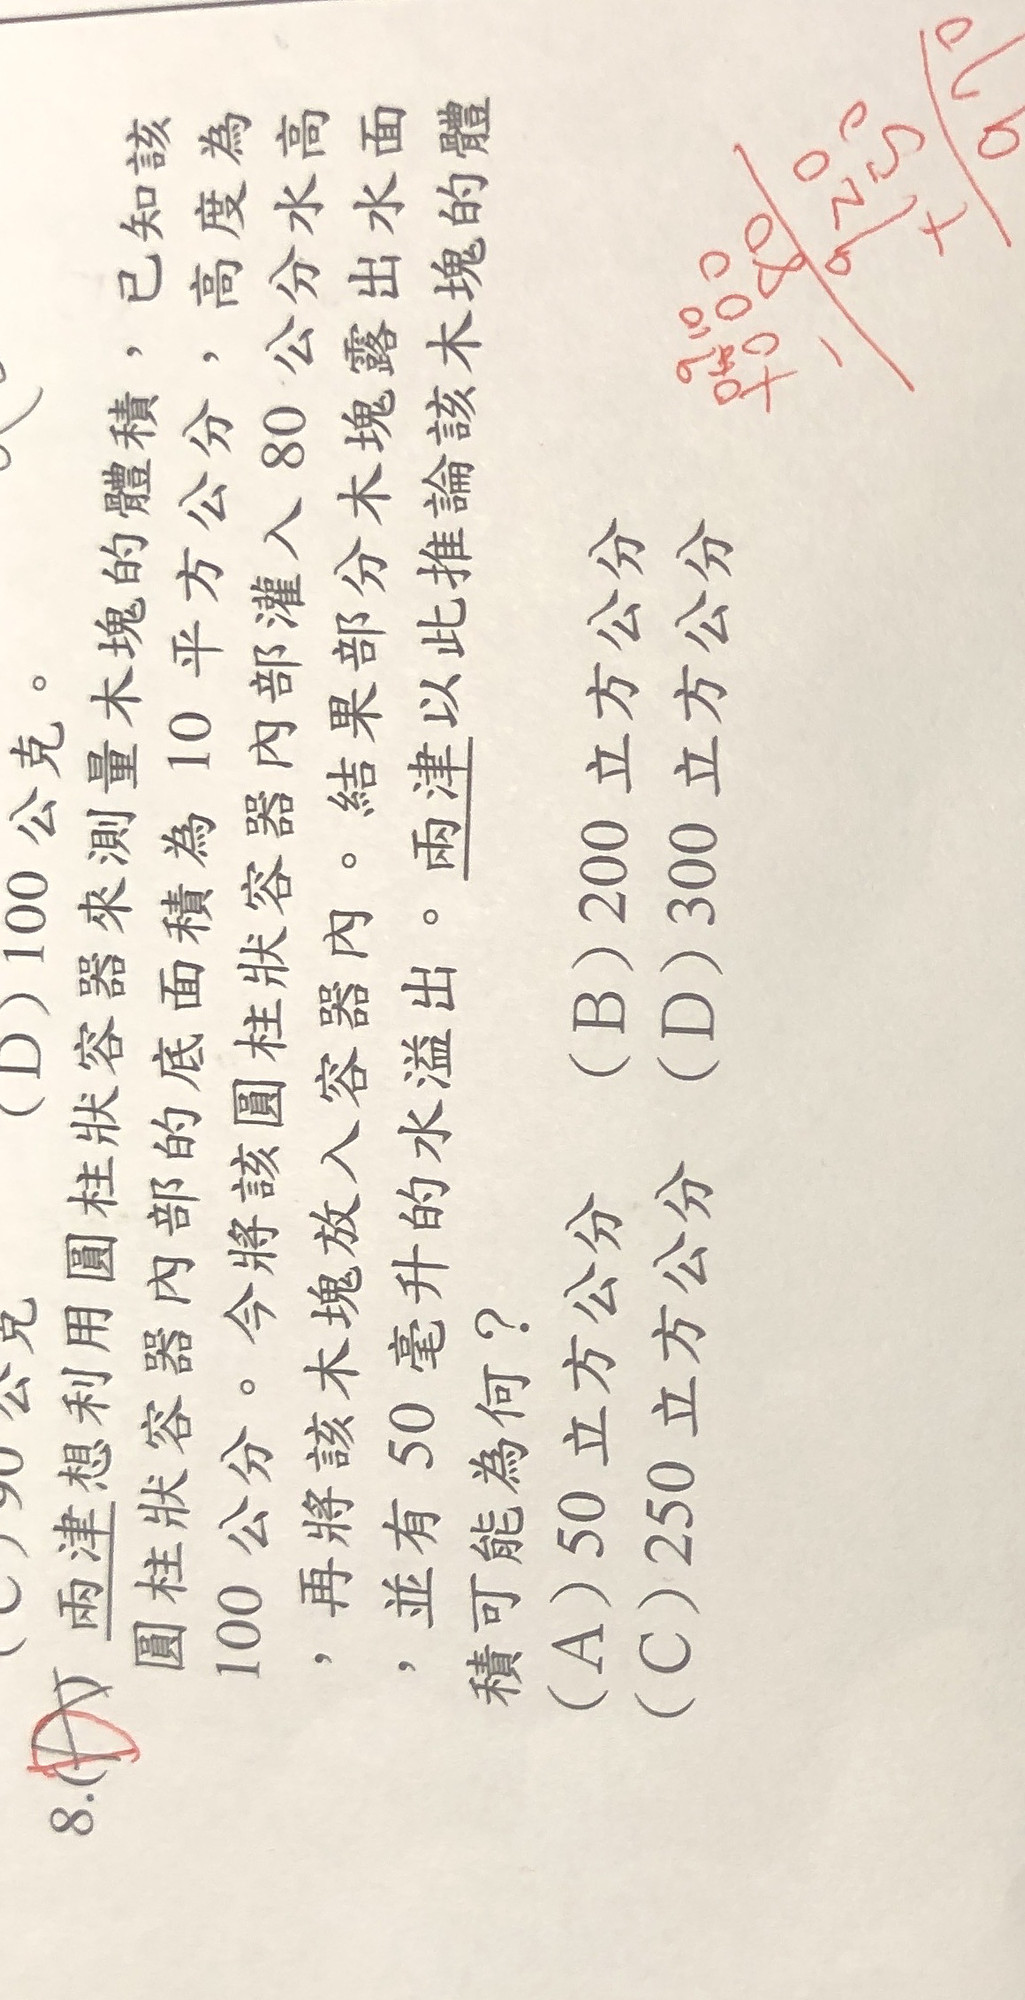 (D)100公克。
8.(D)兩津想利用圓柱狀容器來測量木塊的體積，已知該
圓柱狀容器內部的底面積為 10 平方公分，高度為
100 公分。今將該圓柱狀容器內部灌入 80 公分水高
，再將該木塊放入容器內。結果部分木塊露出水面
，並有 50 毫升的水溢出。兩津以此推論該木塊的體
積可能為何？
(A)50 立方公分 (B)200 立方公分
(C)250 立方公分 (D)300 立方公分
80
920